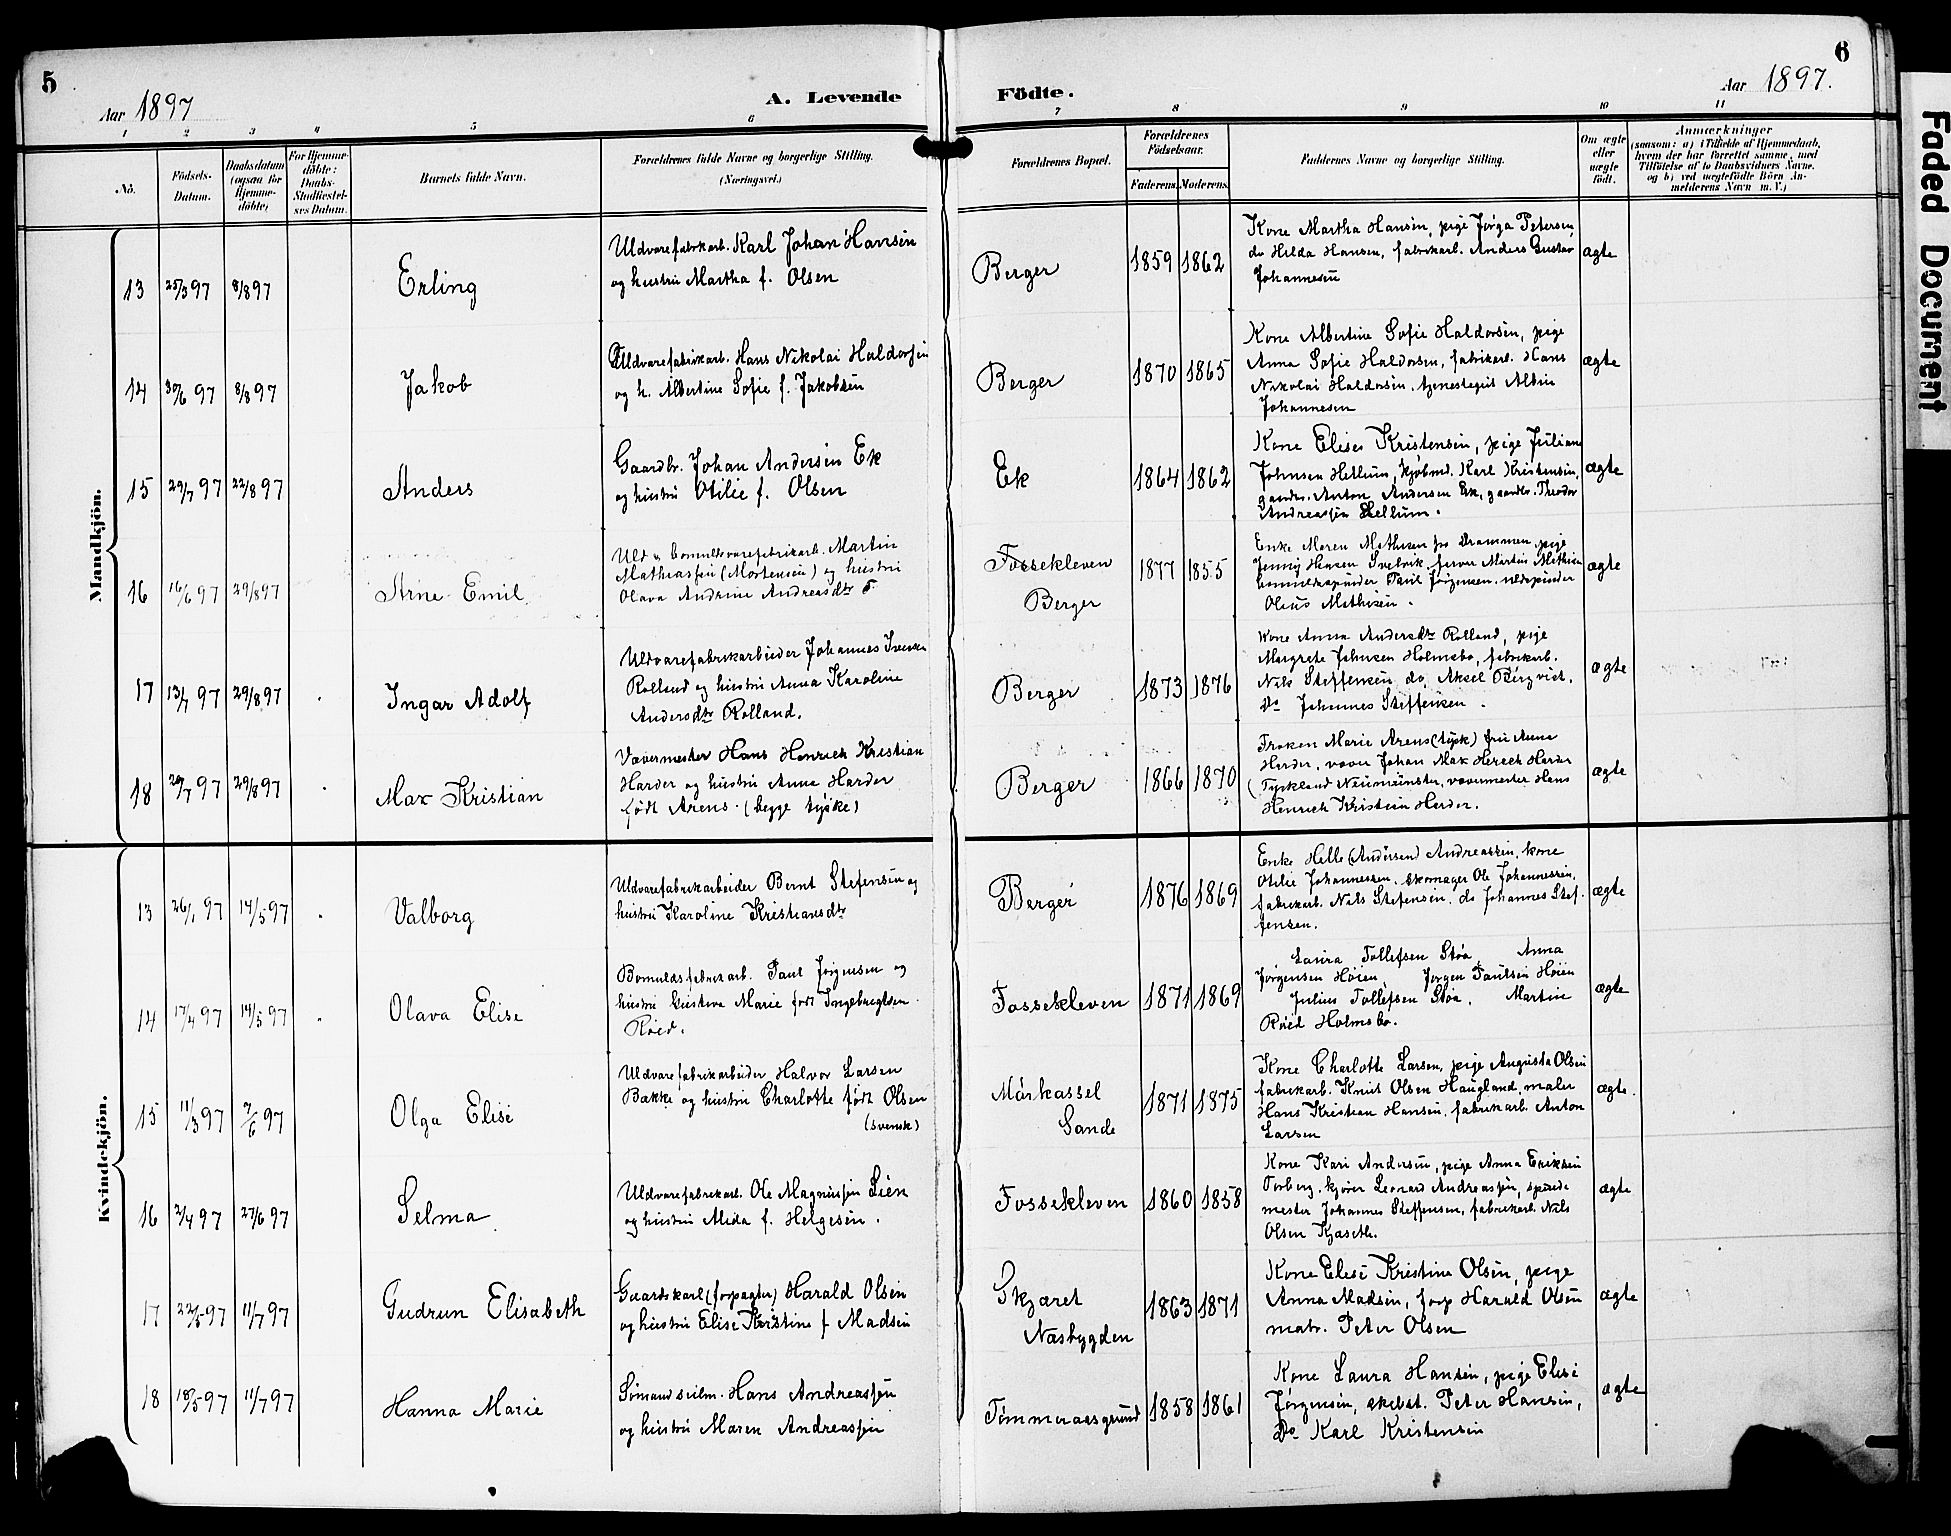 5
Aar 1897
A. Levende
Födte.
Aar 1897.
6
Faded Document
1 2 3 4 5 6 7 8 9 10 11
No.
Födsels-
Datum.
Daabsdatum
(ogsaa for
Hjemme-
döbte)
For Hjemme-
döbte:
Daabs-
Stadfæstel-
ses Datum.
Barnets fulde Navn.
Forældrenes fulde Navne og borgerlige Stilling.
(Næringsvei.)
Forældrenes Bopæl.
Forældrenes
Födselsaar.
Faderens. Moderens.
Faddernes Navne og borgerlige Stilling.
Om ægte
eller
uægte
födt.
Anmærkninger
(saasom: a) i Tilfælde af Hjemmedaab,
hvem der har forrettet samme, med
Tilföielse af to Daabsvidners Navne.
og b) ved uægtefödte Börn An-
melderens Navn m. V.)
Mandkjön.
13 25/3 97 8/8 97 Erling
Uldvarefabrikarb. Karl Johan Hansen
og hustru Martha f. Olsen
Berger 1859 1862
Kone Martha Hansen, pige Jørga Petersen,
do Hilda Hansen, fabrikarb. Anders Gustav
Johannesen
ægte
14 30/6 97 8/8 97 Jakob
Uldvarefabrikarb. Hans Nikolai Haldorsen
og h. Albertine Sofie f. Jakobsen
Berger 1870 1865
Kone Albertine Sofie Haldorsen, pige
Anna Sofie Haldorsen, fabrikarb. Hans
Nikolai Haldorsen, tjenestegut Albin
Johannesen
ægte
15 29/7 97 22/8 97 Anders
Gaardbr. Johan Andersen Ek
og hustru Otilie f. Olsen
Ek 1864 1862
Kone Elise Kristensen, pige Juliane
Johnsen Hellum, kjøbmd. Karl Kristensen,
gaardbr. Anton Andersen Ek, gaardbr. Theodor
Andreassen Hellum.
ægte
16 16/6 97 29/8 97 Arne Emil
Uld & bomuldsvarefabrikarb. Martin
Mathiassen (Mortensen) og hustru
Olava Andrine Andreasdtr
Fossekleven
Berger
1877 1855
Enke Maren Mathisen fra Drammen, pige
Jenny Hansen Svelvik, farver Martin Mathisen
bomuldsspinder Paul Jørgensen, uldspinder
Olaus Mathisen.
ægte
17 13/7 97 29/8 97 Ingar Adolf
Uldvarefabrikarbeider Johannes Ivensen
Rolland og hustru Anna Karoline
Andersdtr Rolland.
Berger 1873 1876
Kone Anna Andersdtr Rolland, pige
Margrete Johnsen Holmsbo, fabrikarb.
Nils Steffensen do, Aksel Bergvist,
Do Johannes Steffensen.
ægte
18 29/7 97 29/8 97 Max Kristian
Vævermester Hans Henrich Kristian
Harder og hustru Anna Harder
født Arens. (begge tyske)
Berger 1866 1870
Frøken Marie Arens (tysk) fru Anna
Harder, væver Johan Max Harder
(Tyskland Neumünster, vævermester Hans
Henrich Kristian Harder.
ægte
Kvindekjön.
13 26/1 97 14/5 97 Valborg
Uldvarefabrikarbeider Bernt Stefensen og
hustru Karoline Kristiansdtr
Berger 1876 1869
Enke Helle (Andersen) Andreassen, kone
Otilie Johannessen, skomager Ole Johannessen,
fabrikarb. Nils Stefensen, do Johannes Stef-
fensen.
ægte
14 17/4 97 14/5 97 Olava Elise
Bomuldsfabrikarb. Paul Jørgensen og
hustru Gustava Marie født Ingebregtsen
Røed.
Fossekleven 1871 1869
Laura Tollefsen Støa, Anna
Jørgensen Høien, Jørgen Paulsen Høien
Julius Tollefsen Støa, Martin
Røed Holmsbo.
ægte
15 11/3 97 7/6 97 Olga Elise
Uldvarefabrikarbeider Halvor Larsen
Bakke og hustru Charlotte født Olsen
(svensk)
Mårkassel
Sande
1871 1875
Kone Charlotte Larsen, pige Augusta Olsen
fabrikarb. Knut Olsen Haugland, maler
Hans Kristian Hansen, fabrikarb. Anton
Larsen
ægte.
16 2/4 97 27/6 97 Selma
Uldvarefabrikarb. Ole Magnussen Lien
og hustru Mida f. Helgesen.
Fossekleven 1860 1858
Kone Kari Andersen, pige Anna Eriksen
Torberg, kjører Leonard Andreassen, spinde
mester Johannes Steffensen, fabrikarb. Nils
Olsen Kjaseth.
ægte
17 22/5 97 11/7 97 Gudrun Elisabeth
Gaardskarl (forpagter) Harald Olsen
og hustru Elise Kristine f Madsen
Skjæret
Næsbygden
1863 1871
Kone Elise Kristine Olsen, pige
Anna Madsen, forp Harald Olsen
matr. Peter Olsen
ægte
18 18/5 97 11/7 97 Hanna Marie
Sømand seilm. Hans Andreassen
og hustru Maren Andreassen
Tømmeraasgrund 1858 1861
Kone Laura Hansen, pige Elise
Jørgensen, Peter Hansen,
Do Karl Kristensen
ægte